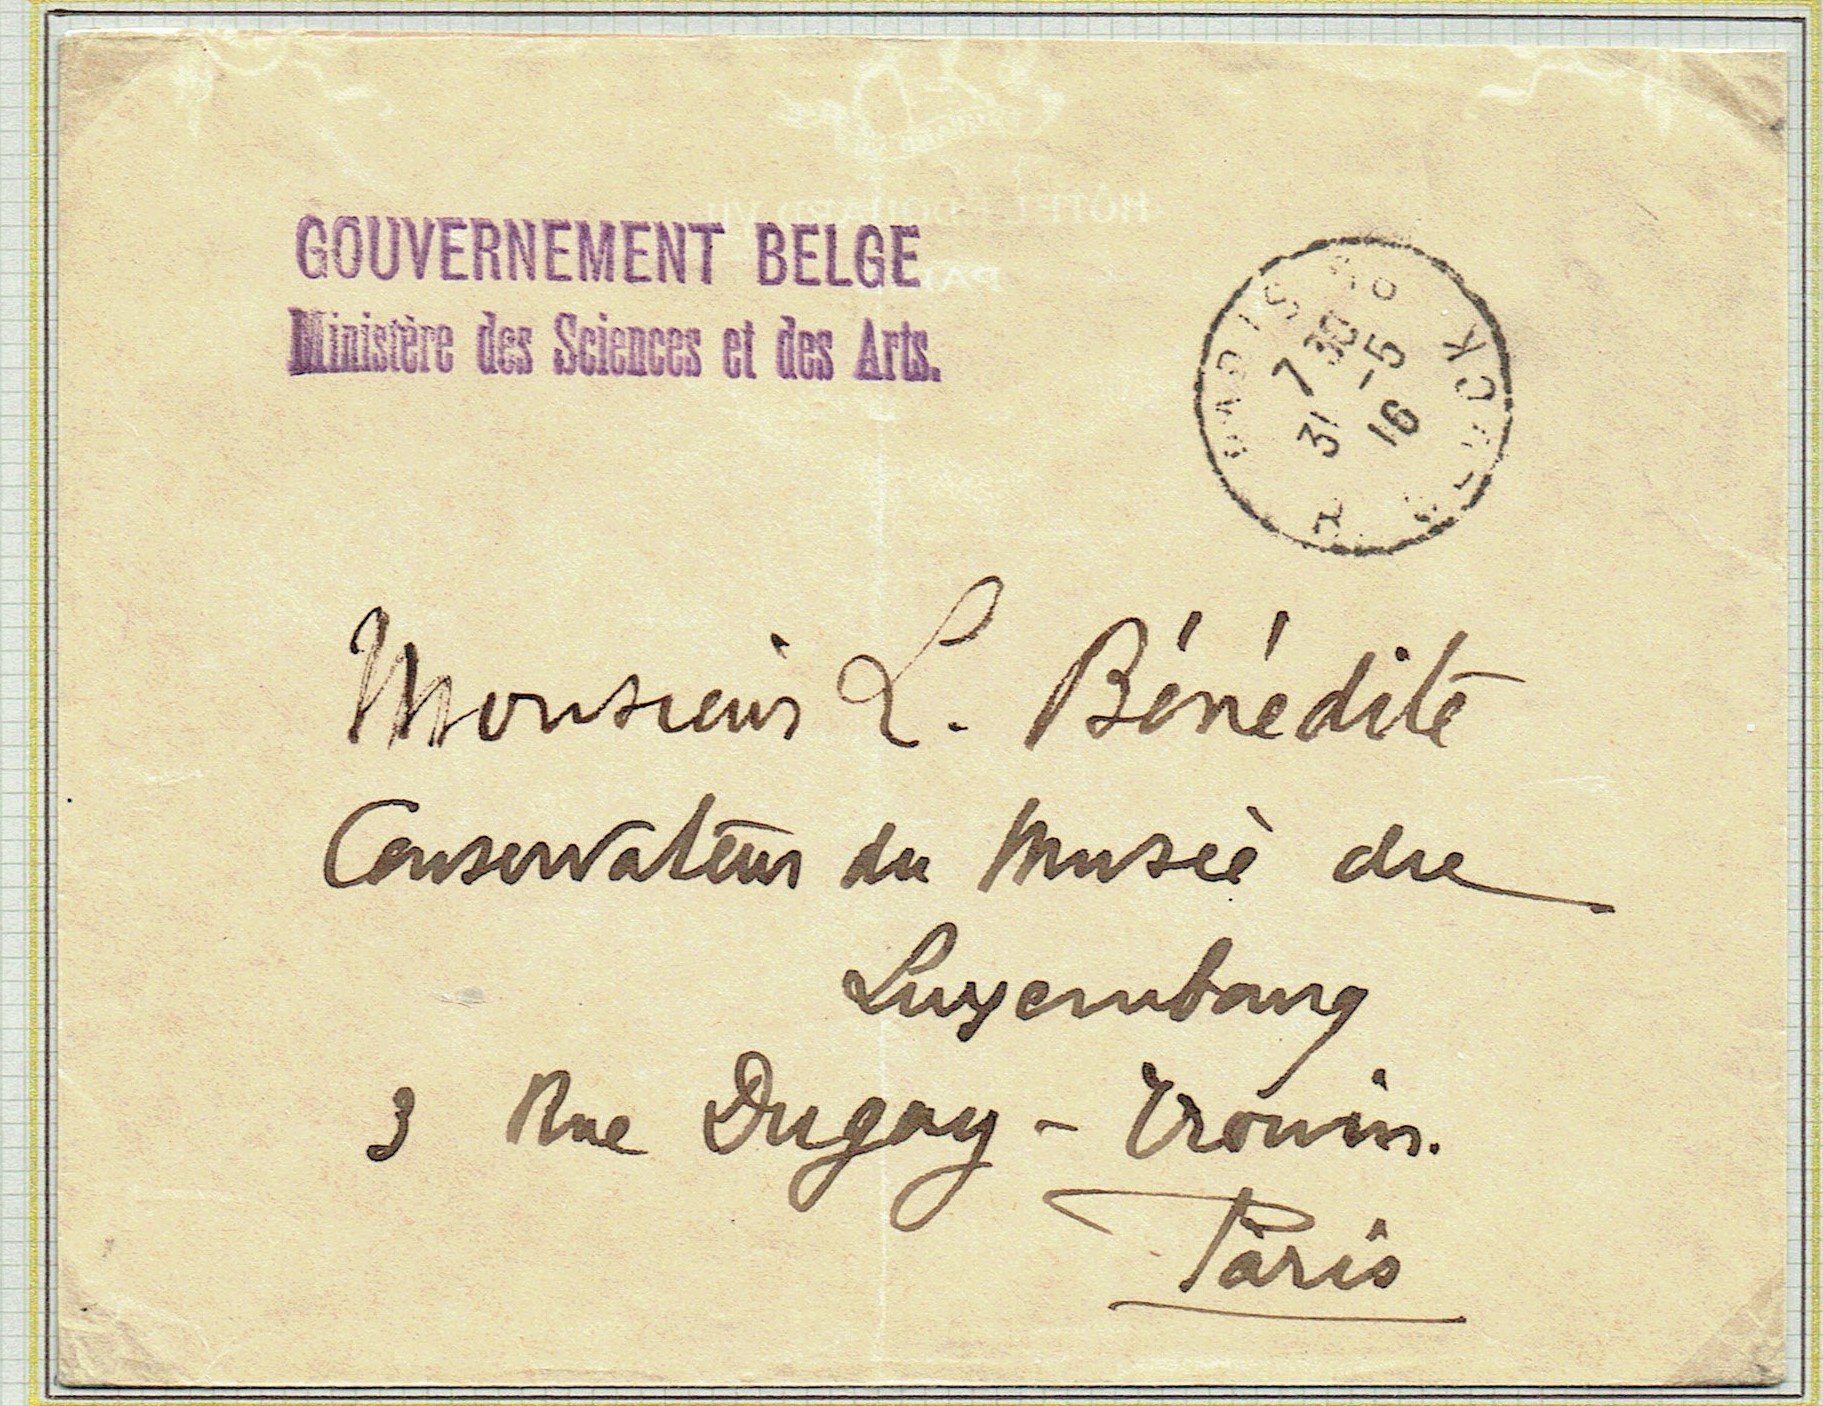 GOUVERNEMENT BELGE
Ministère des Sciences et des Arts.
PARIS
7 30
31 -5
16
Monsieur L. Bénédite
Conservateur du Musée du
Luxembourg
3 Rue Dugay-Trouin.
Paris
HÔTEL